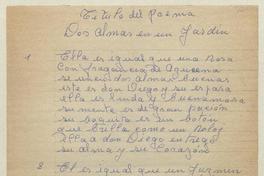 Titulo del Poema
Dos Almas en un Jardin
1 Ella es igual que una rosa
Con fragancia de Azucena
se unen dos almas buenas
este es don Diego y se es para
ella es linda y buenamosa
su mente es de gran
su boquita es un boton
que brilla como un Reloj
ella a don Diego entrego
su alma y su Corazón
2. El es igual que un Jazmin